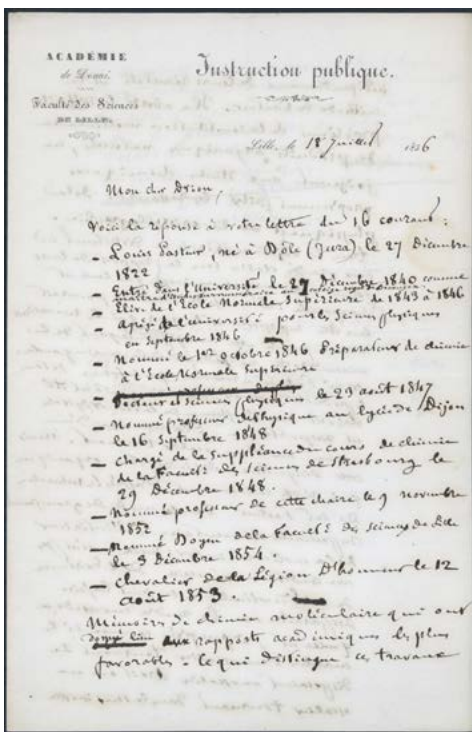 ACADÉMIE
de Douai
Faculté des Sciences
DE LILLE.
Instruction publique.
Lille, le 18 Juillet 1856
Mon cher Drion,
Voici la réponse à votre lettre du 16 courant :
- Louis Pasteur, né à Dôle (Jura) le 27 Décembre
1822
- Entré dans l'Université le 27 Décembre 1840 comme
maître d'études
- Elève de l'Ecole Normale Supérieure de 1843 à 1846
- Agrégé de l'université pour les Sciences physiques
en Septembre 1846
- Nommé le 1er octobre 1846 Préparateur de chimie
à l'Ecole Normale Supérieure
- Docteur ès sciences physiques le 23 août 1847
- Nommé professeur de Physique au lycée de Dijon
le 16 Septembre 1848
- Chargé de la Suppléance du cours de chimie
de la Faculté des sciences de Strasbourg le
29 Décembre 1848.
- Nommé professeur de cette chaire le 9 novembre
1852
- Nommé Doyen de la Faculté des sciences de Lille
le 3 Décembre 1854.
- Chevalier de la Légion D'honneur le 12
août 1853.
Mémoires de chimie moléculaire qui ont
donné lieu aux rapports académiques les plus
favorables - Ce qui distingue ces travaux